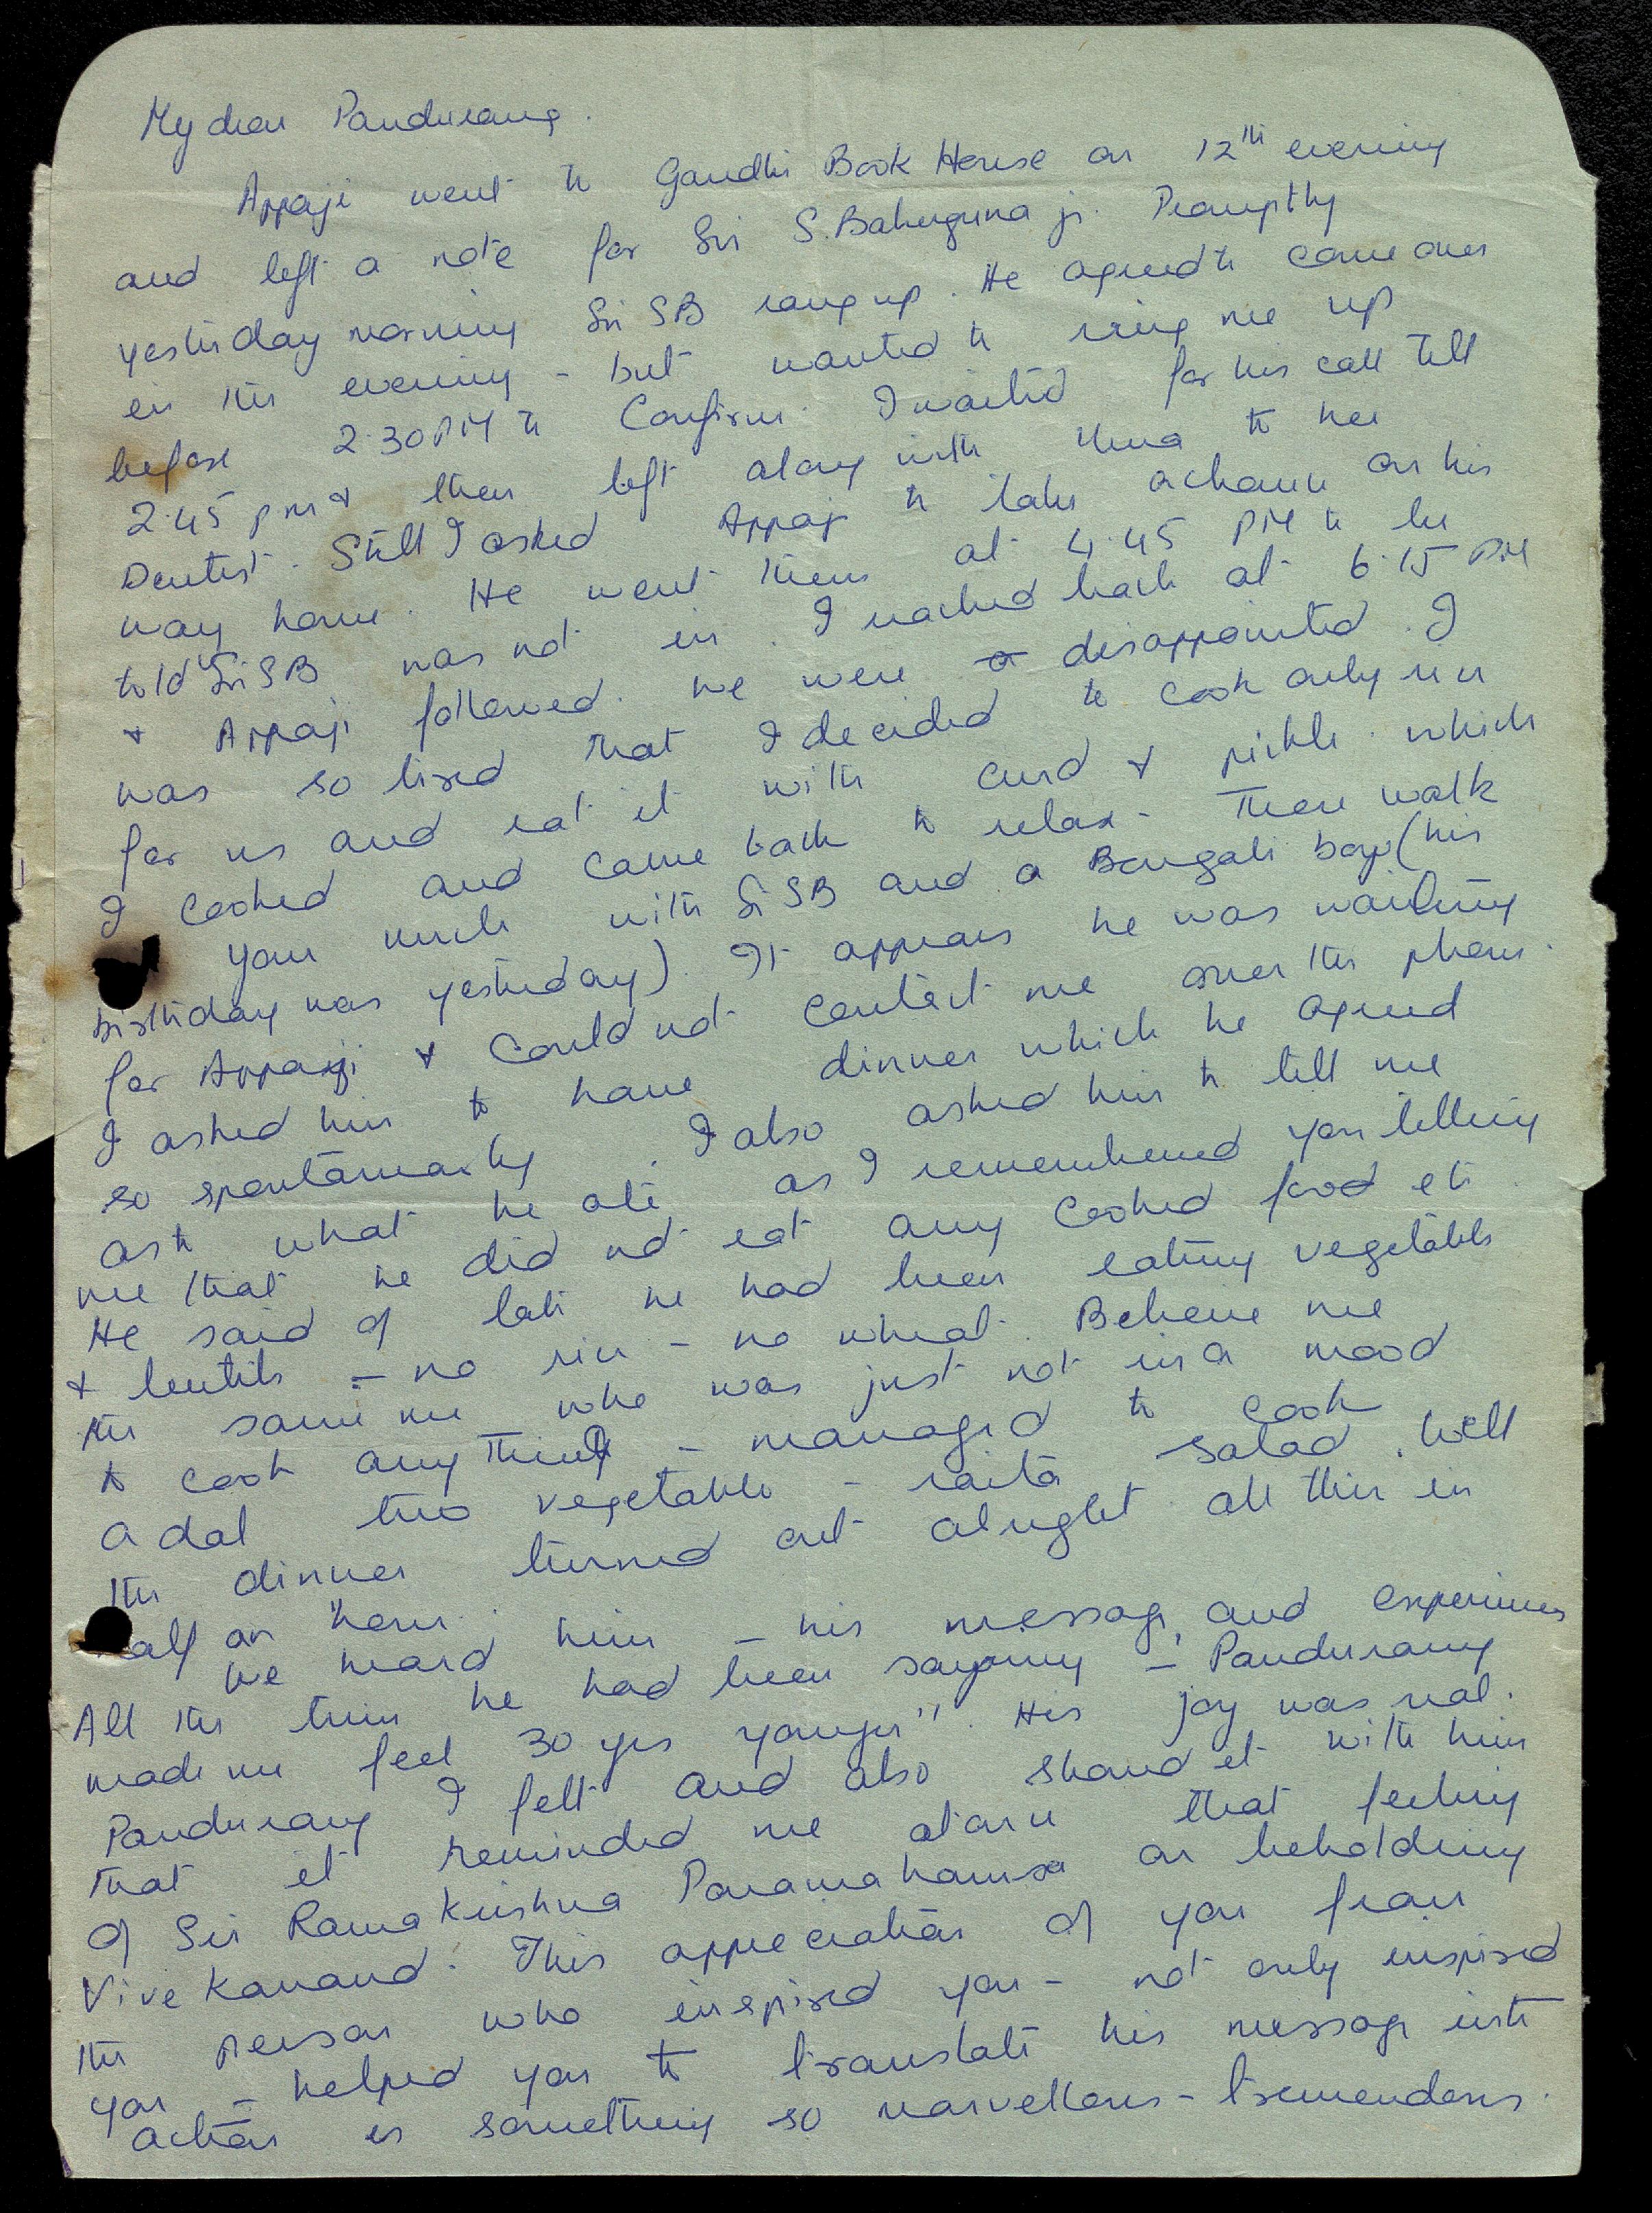 My dear Pandurang.
Appaji went to Gandhi Book House on 12th evening
and left a note for Sri S. Bahuguna ji. Promptly
yesterday morning Sri SB rang up. He agreed to come over
in the evening - but wanted to ring me up
before 2.30 PM to confirm. I waited for his call till
2.45 pm & then left along with to her
Dentist. Still I asked Appaji to take a chance on his
way home. He went there at 4.45 PM to be
told Sri SB was not in. I reached back at 6.15 PM
& Appaji followed. We were disappointed. I
was so tired that I decided to cook only rice
for us and eat it with curd & pickle. which
I cooked and came back to relax - There walk
your uncle with Sri SB and a Bengali boy (his
birthday was yesterday). It appears he was waiting
for Appaji & could not contact me over the phone.
I asked him to have dinner which he agreed
so spontaneously. I also asked him to tell me
as to what he ate as I remembered you telling
me that he did not eat any cooked food etc.
He said of late he had been eating vegetables
& lentils - no rice - no wheat. Believe me
the same me who was just not in a mood
to cook anything - managed to cook
a dal two vegetables - raita salad. Well
the dinner turned out alright all this in
half an hour.
We heard him - his message, and experiences
All the time he had been saying - Pandurang
made me feel 30 yrs younger". His joy was real.
Pandurang I felt and also shared it with him
that it reminded me at once that feeling
of Sri Ramakrishna Paramahamsa on beholding
Vivekanand. This appreciation of you from
the person who inspired you - not only inspired
you - helped you to translate his message into
action is something so marvellous - tremendous.